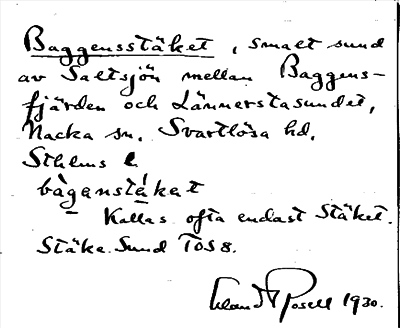 Baggensstäket, smalt sund
av Saltsjön mellan Baggens-
fjärden och Lännerstasundet,
Nacka sn. Svartlösa hd.
Sthlms l.
bàganstákat
Kallas ofta endast Stäket.
Stäke Sund TOS 8.
Rosell 1930.